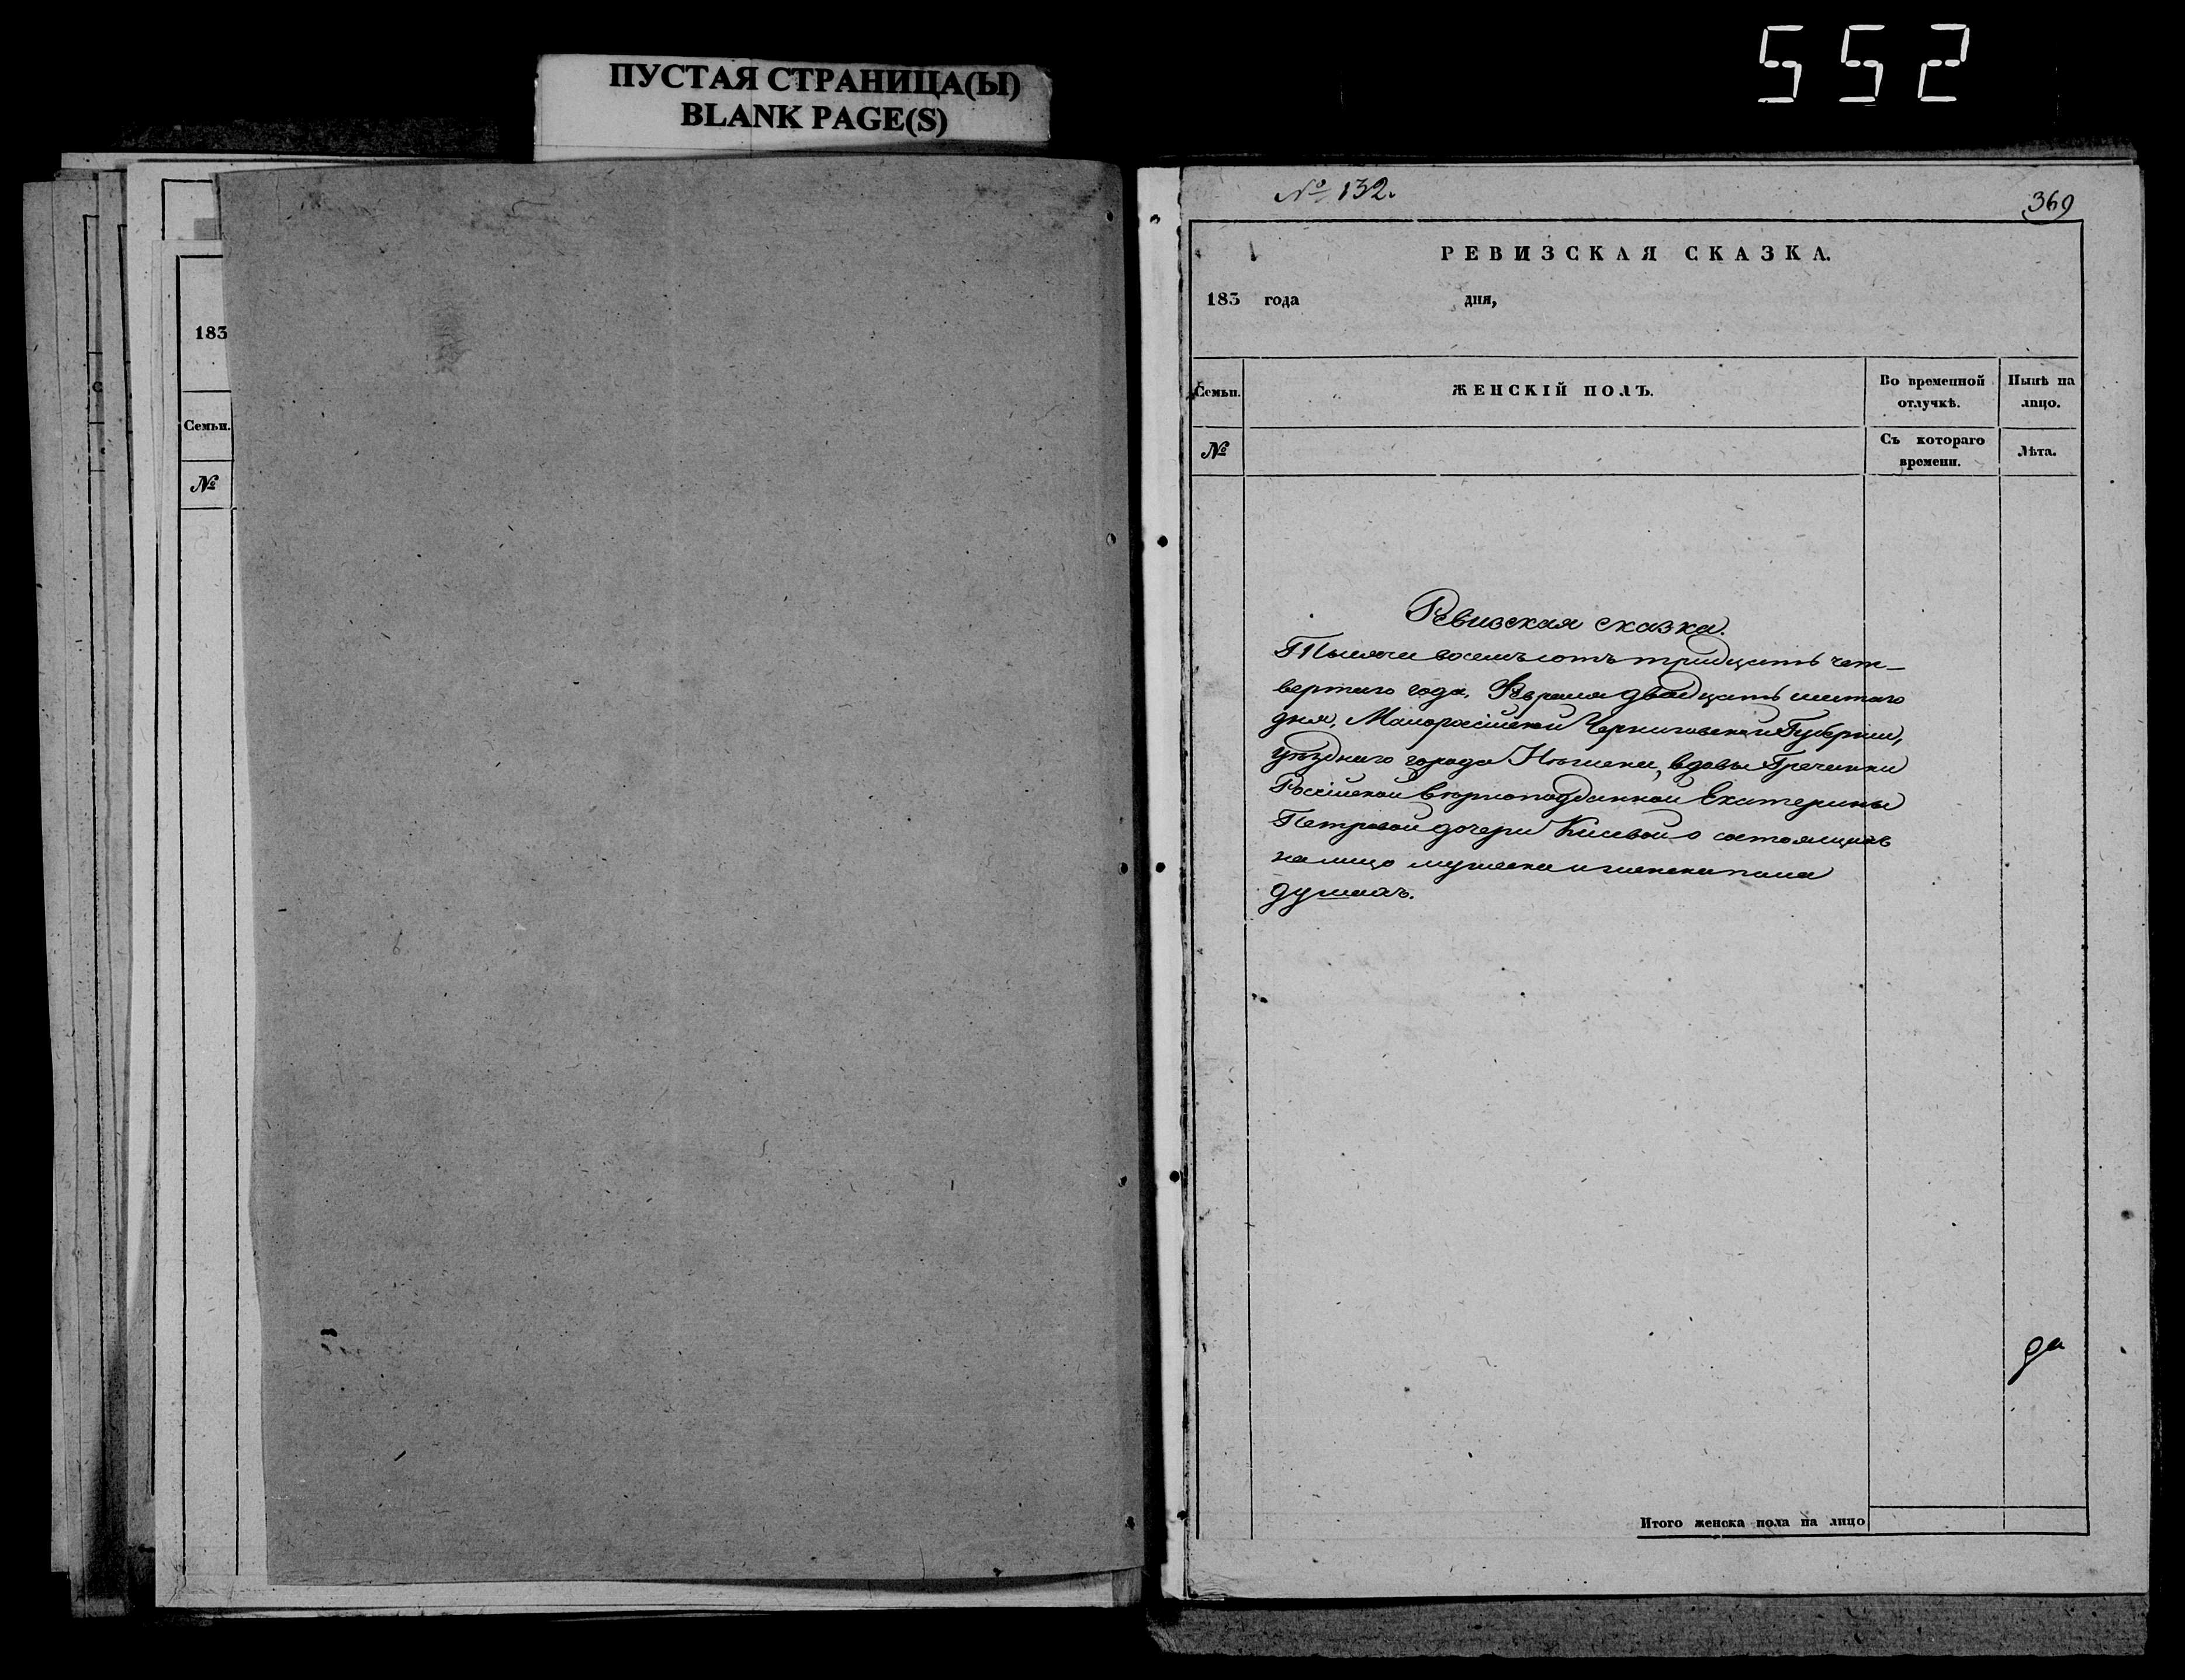 ПУСТАЯ СТРАНИЦА(Ы)
BLANK PAGE(S)
552
183
Семьи.
№
№ 132.
369
РЕВИЗСКАЯ СКАЗКА.
183 года дня,
Семьи.
ЖЕНСКІЙ ПОЛЪ.
Во временной отлучкѣ.
Нынѣ на лицо.
№
Съ котораго времени.
Лѣта.
Ревизская сказка.
Тысяча восемьсотъ тридцать чет-
вертаго года, Февраля двадцать шестаго
дня, Малоросійской Черниговской Губерніи,
уѣзднаго города Нѣжина, вдовы Гречанки
Россійской вѣрноподданной Екатерины
Петровой дочери о состоящихъ
на лицо мужеска и женска пола
душахъ.
да
Итого женска пола на лицо